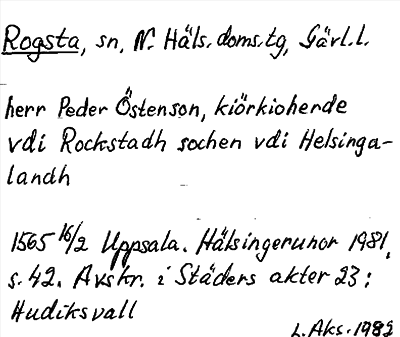 Rogsta, sn, N. Häls. doms.tg, Gävl.l.
herr Peder Östenson, kiörkioherde
vdi Rockstadh sochen vdi Helsinga-
landh
1565 16/2 Uppsala. Hälsingerunor 1981,
s. 42. Avskr. i Städers akter 23:
Hudiksvall
L. Aks. 1982